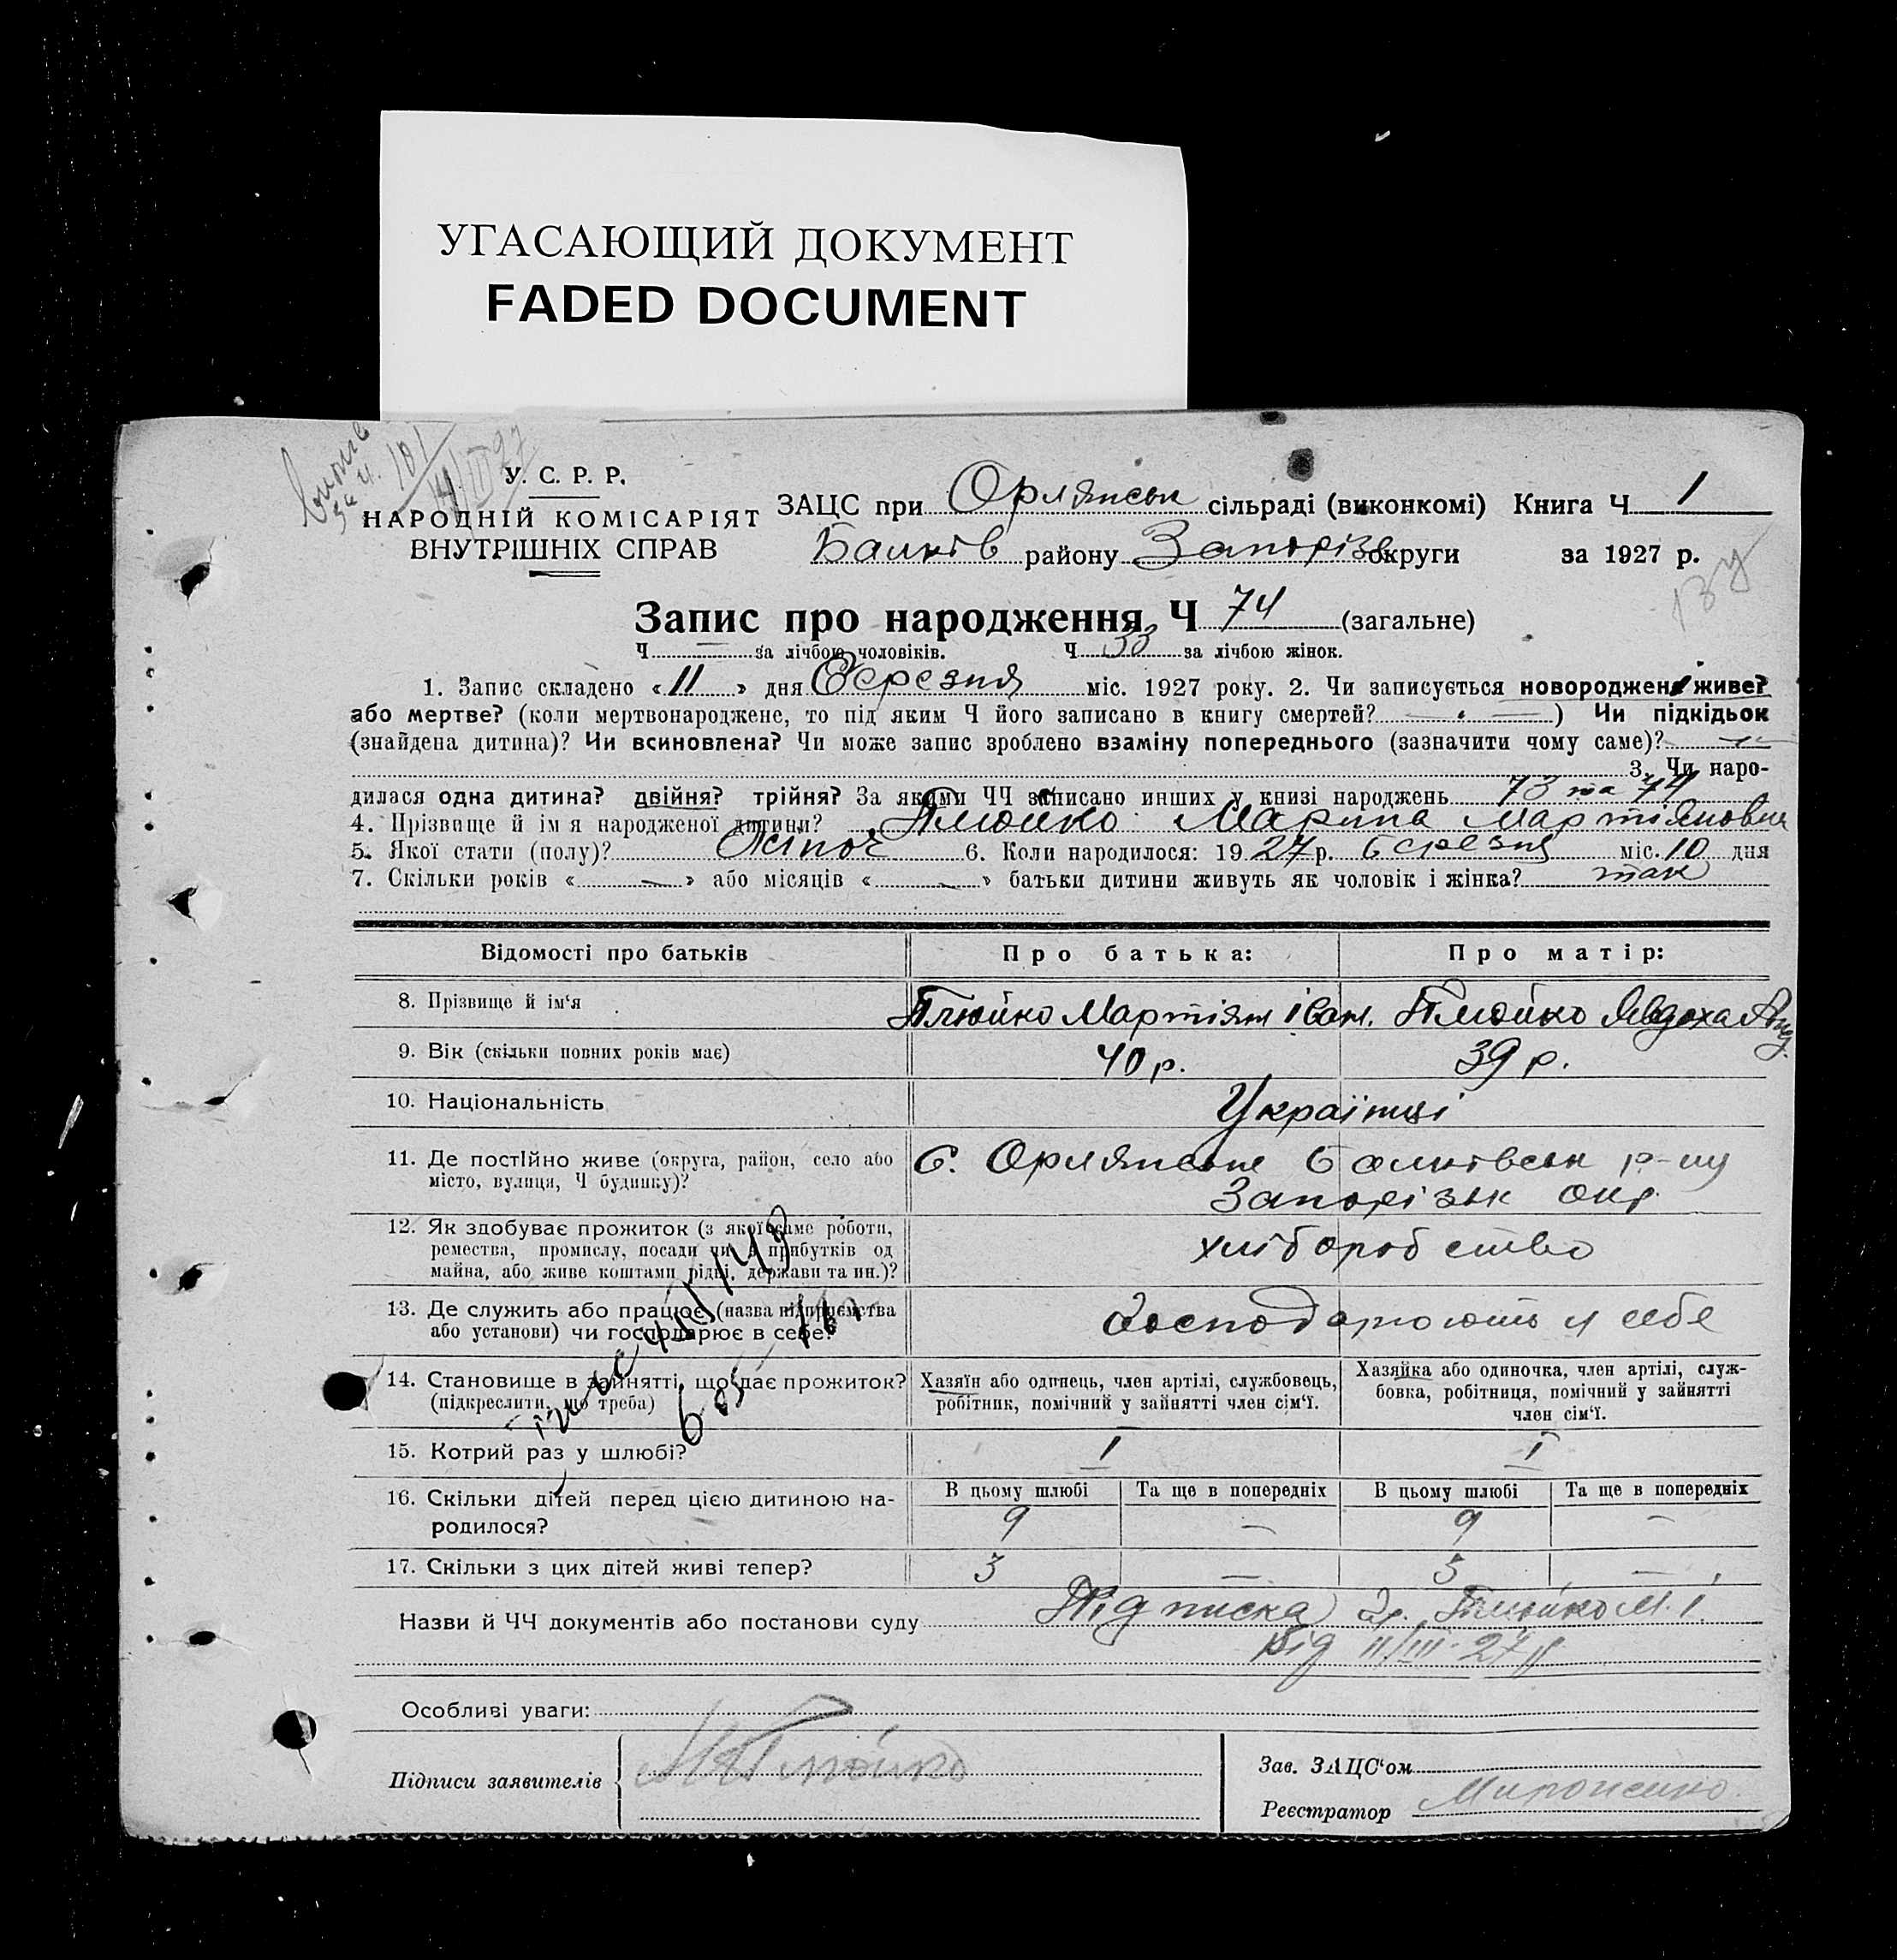 УГАСАЮЩИЙ ДОКУМЕНТ
FADED DOCUMENT
за ч. 101
14/III 27
У. С. Р. Р.
НАРОДНІЙ КОМІСАРІЯТ
ВНУТРІШНІХ СПРАВ
ЗАЦС при Орлянськ сільраді (виконкомі) Книга Ч 1
Балків району Запоріз округи за 1927 р.
Запис про народження Ч 74 (загальне)
Ч — за лічбою чоловіків. Ч 33 за лічбою жінок.
1. Запис складено « 11 » дня Березня міс. 1927 року. 2. Чи записується новороджене живе?
або мертве? (коли мертвонароджене, то під яким Ч його записано в книгу смертей? — ) Чи підкідьок
(знайдена дитина)? Чи всиновлена? Чи може запис зроблено взаміну попереднього (зазначити чому саме)? —
3. Чи наро-
дилася одна дитина? двійня? трійня? За якими ЧЧ записано инших у книзі народжень 73 та 74
4. Прізвище й ім я народженої дитини? Плюйко Марина Мартіяновна
5. Якої стати (полу)? Жіноч 6. Коли народилося: 1927 р. березня міс. 10 дня
7. Скільки років « — » або місяців « — » батьки дитини живуть як чоловік і жінка? так
Відомості про батьків Про батька: Про матір:
8. Прізвище й ім‘я Плюйко Мартіян Іван. Плюйко Явдоха Анд.
9. Вік (скільки повних років має) 40 р. 39 р.
10. Національність Українці
11. Де постійно живе (округа, район, село або
місто, вулиця, Ч будинку)?
С. Орлянське Балківськ р-ну
Запорізьк окр.
12. Як здобуває прожиток (з якої саме роботи,
ремества, промислу, посади чи з прибутків од
майна, або живе коштами рідні, держави та ин.)?
хліборобство
13. Де служить або працює (назва підприємства
або установи) чи господарює в себе?
Господарюють у себе
14. Становище в зайнятті, що дає прожиток?
(підкреслити, що треба)
Хазяїн або одинець, член артілі, службовець,
робітник, помічний у зайнятті член сім‘ї.
Хазяйка або одиночка, член артілі, служ-
бовка, робітниця, помічний у зайнятті
член сім‘ї.
15. Котрий раз у шлюбі? 1 1
16. Скільки дітей перед цією дитиною на-
родилося?
В цьому шлюбі Та ще в попередніх В цьому шлюбі Та ще в попередніх
9 — 9 —
17. Скільки з цих дітей живі тепер? 3 — 3 —
Назви й ЧЧ документів або постанови суду Підписка гр. Плюйко М. І.
від 11/III-27 р
Особливі уваги:
Підписи заявителів Плюйко
Зав. ЗАЦС‘ом
Реєстратор Мироненко